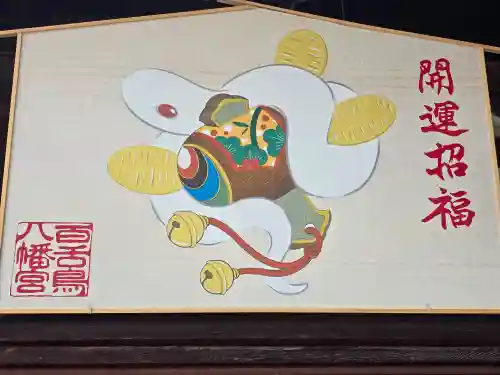 開運招福
百舌鳥
八幡宮